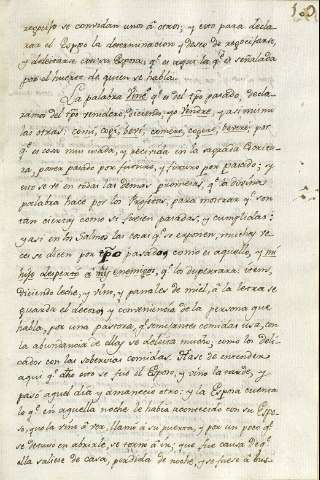 regocijo se convidan unos á otros; y esto para decla-
rar el Esposo la determinacion y deseo de regocijarse,
y deleitarse con su Esposa; qe es aqui la qe es señalada
por el huerto de quien se habla.
La palabra Vine, qe es del tpo pasado, decla-
ramos del tpo venidero, diciendo; yo Vendré, y asi mismo
las otras: comi, cogi, beví; comeré, cogeré, beveré; por
qe es cosa mui usada, y recivida en la sagrada Escritu-
ra, poner pasado por futuro, y futuro por pasado; y
eso se ve en todas las demas promesas, qe la divina
palabra hace por los Profetas, para mostrar qe son
tan ciertas como si fuesen pasadas, y cumplidas:
y asi en los Salmos las cosas qe se exponen, muchas ve-
ces se dicen por tpo pasado, como es aquello, y mi
hijo desperto á mis enemigos, qe los despertará:
diciendo leche, y vino, y panales de miel, á la letra se
guarda el decoro, y conveniencia de la persona que
habla, por una pastora, qe semejantes comidas usa, con
la abundancia de ellas se deleita mucho, como los deli-
cados con las sobervias comidas. Hase de entender
aqui, qe dho esto se fue el Esposo, y vino la tarde, y
pasó aquel dia, y amanecio otro; y la Esposa cuenta
lo qe en aquella noche le habia acontecido con su Espo-
so, qe la vino á ver, llamó á su puerta, y por un poco qe
se detuvo en abrirle, se tornó á ir; que fue causa de qe
ella saliese de casa, perdida de noche, y se fuese á bus-